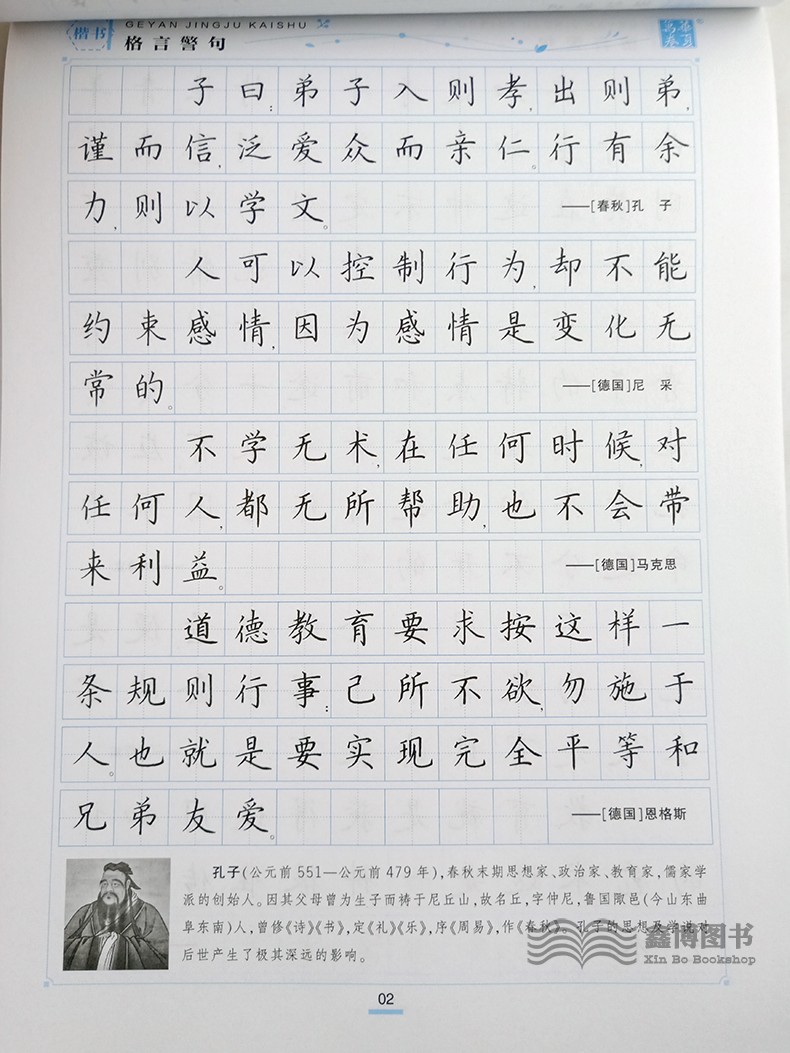 楷书
GEYAN JINGJU KAISHU
格言警句
子曰:弟子入则孝,出则弟,
谨而信,泛爱众而亲仁。行有余
力,则以学文。
——[春秋]孔 子
人可以控制行为,却不能
约束感情,因为感情是变化无
常的。
——[德国]尼 采
不学无术,在任何时候,对
任何人,都无所帮助,也不会带
来利益。
——[德国]马克思
道德教育要求按这样一
条规则行事:己所不欲,勿施于
人。也就是要实现完全平等和
兄弟友爱。
——[德国]恩格斯
孔子(公元前551—公元前479年),春秋末期思想家、政治家、教育家,儒家学
派的创始人。因其父母曾为生子而祷于尼丘山,故名丘,字仲尼,鲁国陬邑(今山东曲
阜东南)人,曾修《诗》《书》,定《礼》《乐》,序《周易》,作《春秋》。孔子的思想及学说对
后世产生了极其深远的影响。
鑫博图书
Xin Bo Bookshop
02